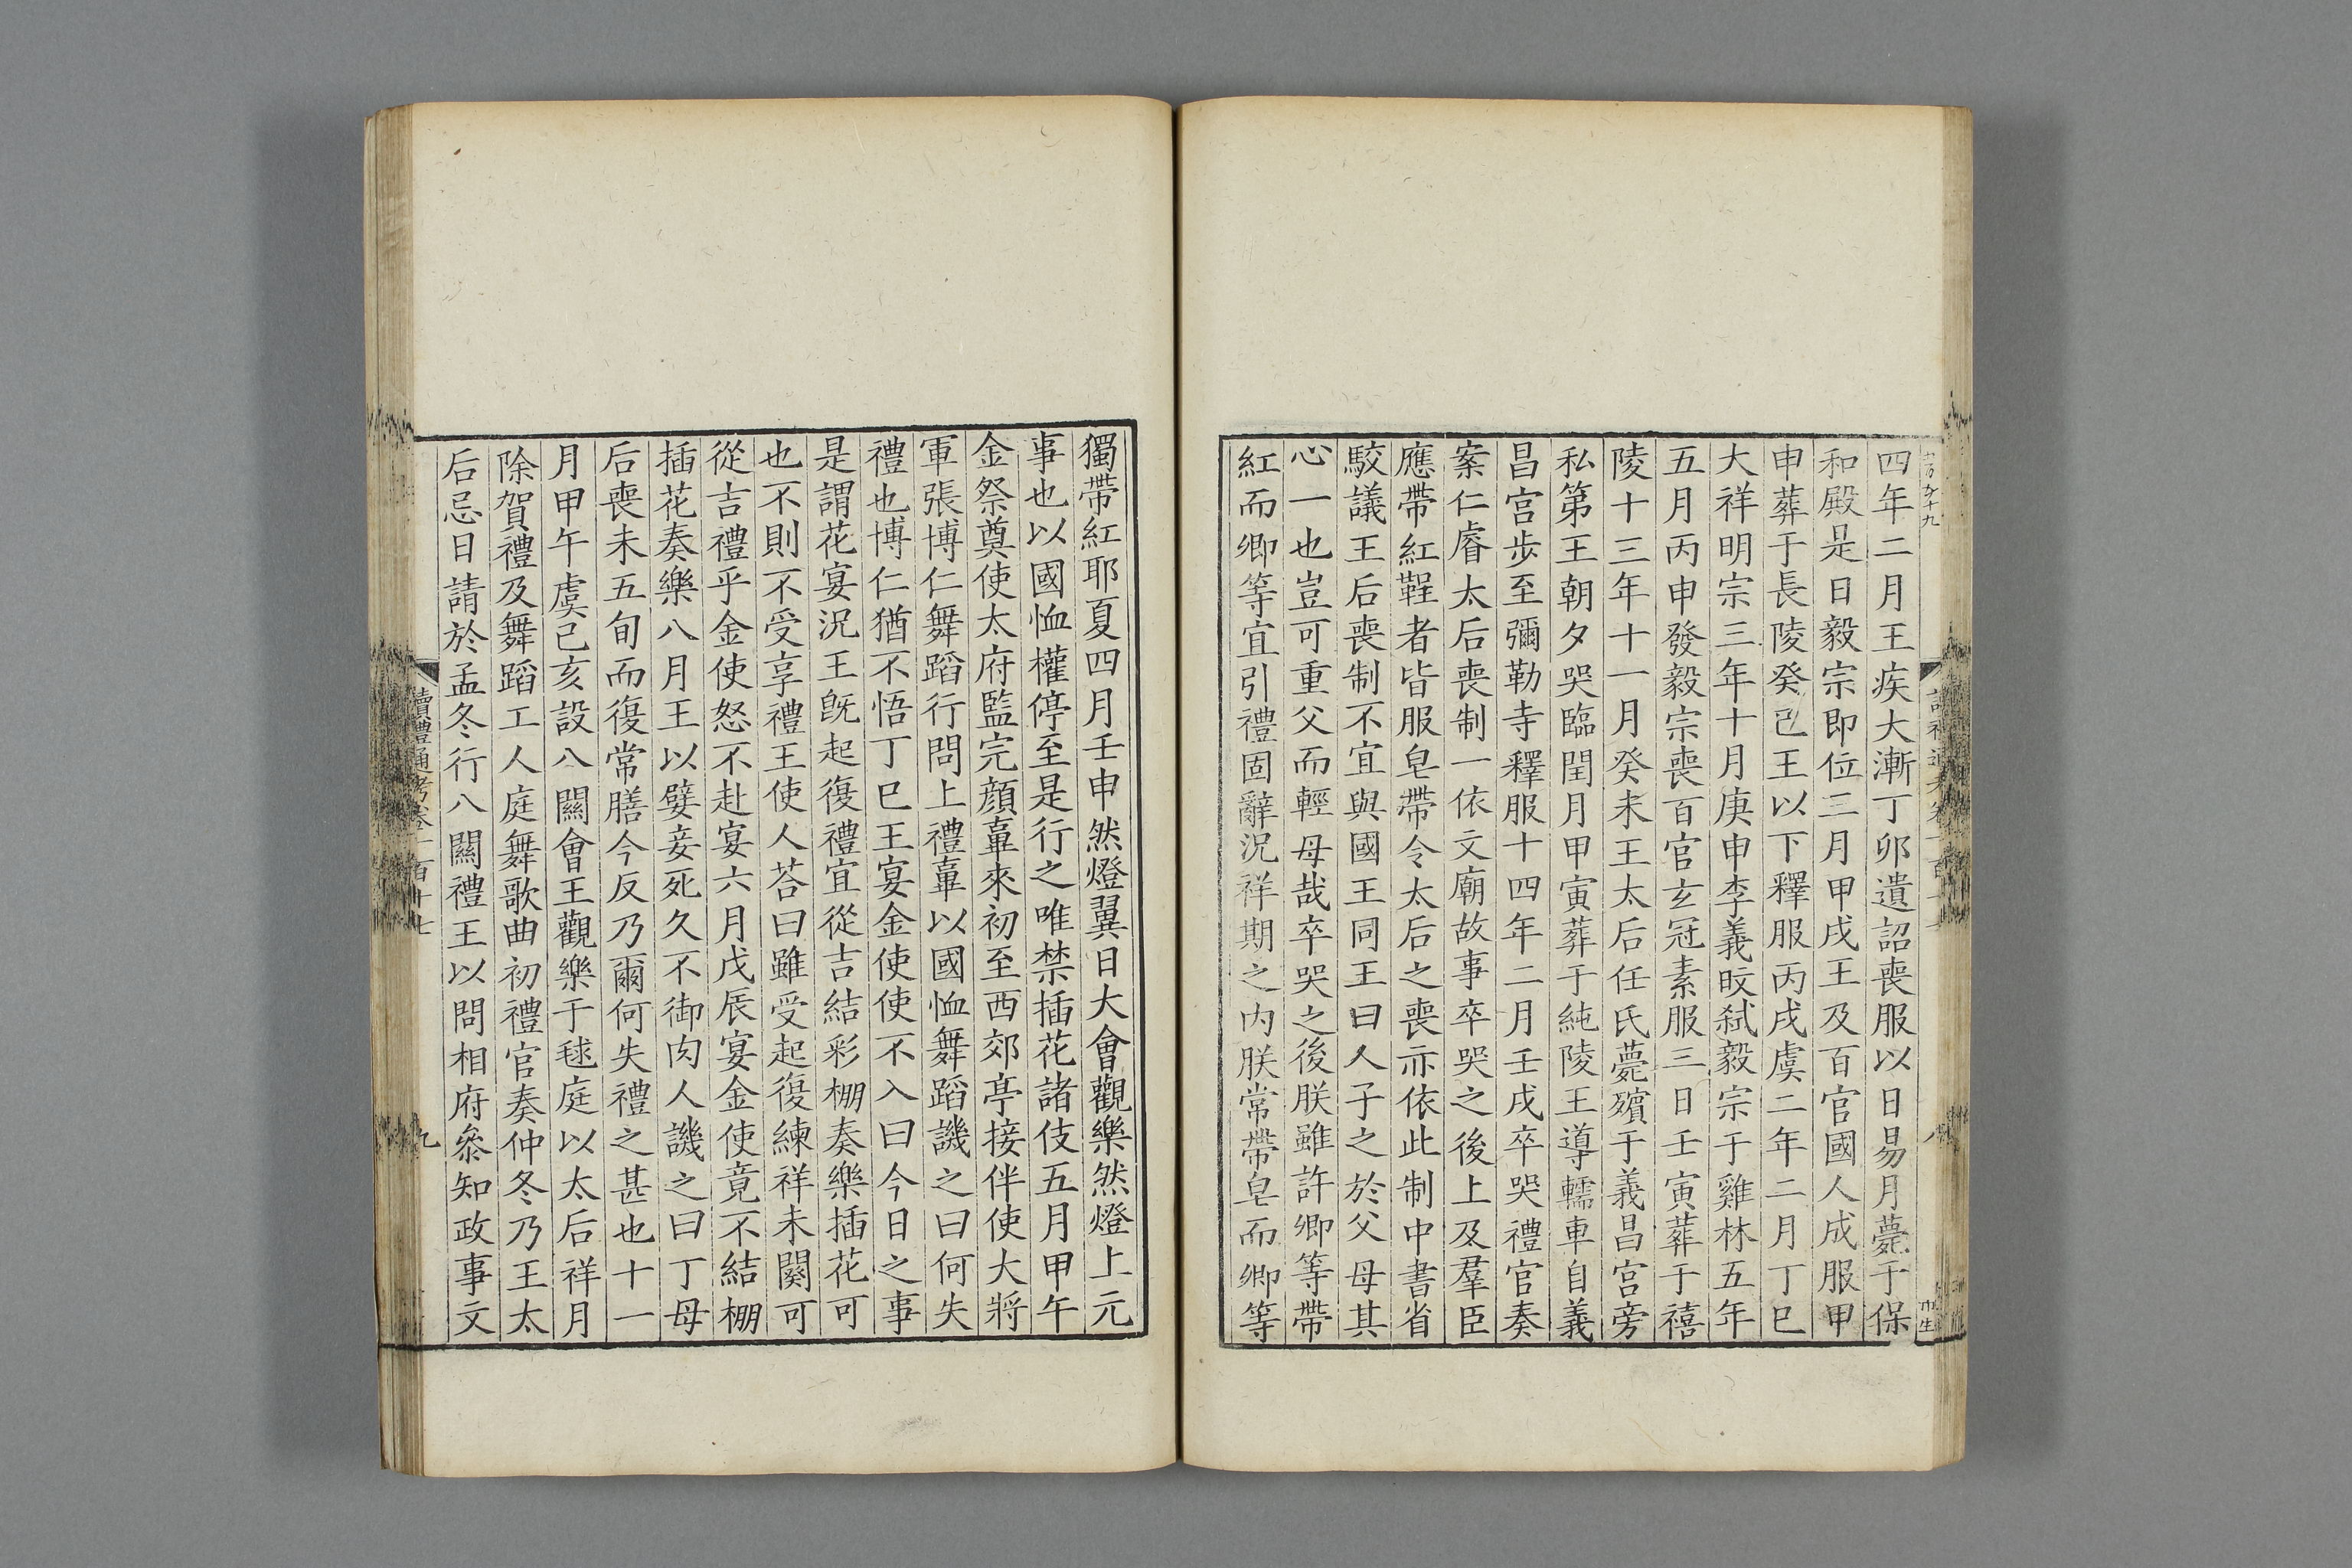 四年二月王疾大漸丁卯遺詔喪服以日易月薨于保
和殿是日毅宗即位三月甲戌王及百官國人成服甲
申葬于長陵癸己王以下釋服丙戌虞二年二月丁巳
大祥明宗三年十月庚申李義旼弑毅宗于雞林五年
五月丙申發毅宗喪百官玄冠素服三日壬寅葬于禧
陵十三年十一月癸未王太后任氏薨殯于義昌宮旁
私第王朝夕哭臨閏月甲寅葬于純陵王導轜車自義
昌宮步至彌勒寺釋服十四年二月壬戌卒哭禮官奏
案仁睿太后喪制一依文廟故事卒哭之後上及羣臣
應帶紅鞓者皆服皂帶令太后之喪亦依此制中書省
駁議王后喪制不宜與國王同王曰人子之於父母其
心一也豈可重父而輕母哉卒哭之後朕雖許卿等帶
紅而卿等宜引禮固辭況祥期之内朕常帶皂而卿等
獨帶紅耶夏四月壬申然燈翼日大會觀樂然燈上元
事也以國恤權停至是行之唯禁插花諸伎五月甲午
金祭奠使太府監完顔𩏑來初至西郊亭接伴使大將
軍張博仁舞蹈行問上禮𩏑以國恤舞蹈譏之曰何失
禮也博仁猶不悟丁巳王宴金使使不入曰今日之事
是謂花宴況王旣起復禮宜從吉結彩棚奏樂插花可
也不則不受享禮王使人荅曰雖受起復練祥未闋可
從吉禮乎金使怒不赴宴六月戊辰宴金使竟不結棚
插花奏樂八月王以嬖妾死久不御肉人譏之曰丁母
后喪未五旬而復常膳今反乃爾何失禮之甚也十一
月甲午虞己亥設八關會王觀樂于毬庭以太后祥月
除賀禮及舞蹈工人庭舞歌曲初禮官奏仲冬乃王太
后忌日請於孟冬行八關禮王以問相府叅知政事文
讀禮通考卷一百十七
九